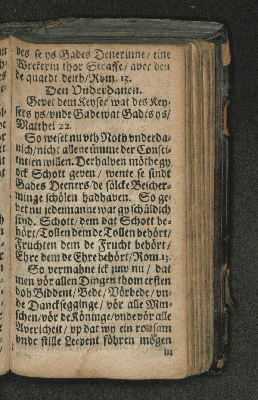 des se ys Gades Denerinne / eine
Wrekerin thor Straffe / aver den
de quaedt deith / Rom. 13.
Den Underdanen.
Gevet dem Keyser wat des Key-
sers ys / unde Gade wat Gades ys /
Matthei 22.
So weset nu uth Noth underda-
nich / nicht allene ümme der Consci-
entien willen. Derhalven möthe gy
ock Schott geven / wente se sindt
Gades Deeners / de sölcke Bescher-
minge schölen hadhaven. So ge-
vet nu jedemanne wat gy schüldich
sind. Schott / dem dat Schott be-
hört / Tollen dem de Tollen behört /
Fruchten dem de Frucht behört /
Ehre dem de Ehre behört / Rom. 13.
So vermahne ick juw nu / dat
men vör allen Dingen thom ersten
doh Biddent / Bede / Vörbede / un-
de Dancksegginge / vör alle Min-
schen / vör de Köninge / unde vör alle
Avericheit / up dat wy ein rousam
unde stille Leevent föhren mögen
in